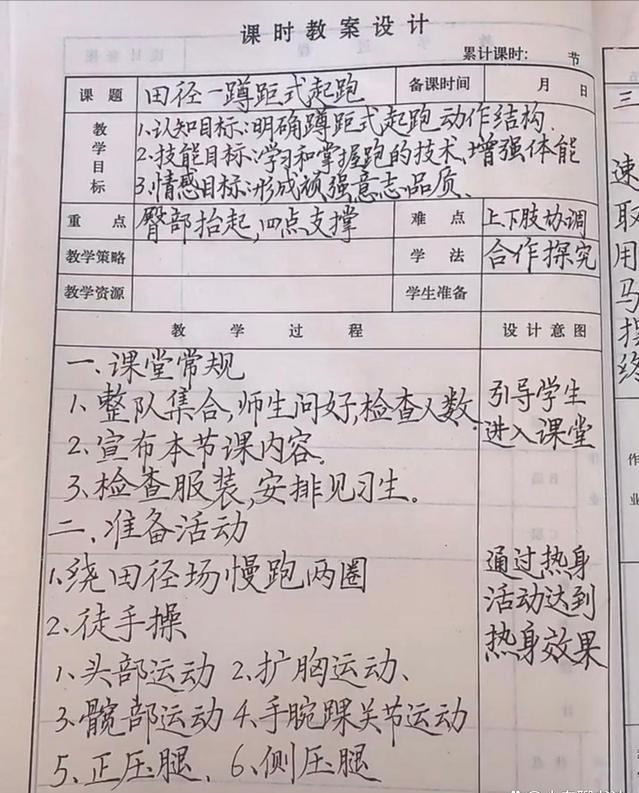 课时教案设计
累计课时: 节
课 题 田径一蹲距式起跑 备课时间 月 日
教学目标 1.认知目标:明确蹲距式起跑动作结构.
2.技能目标:学习和掌握跑的技术,增强体能
3.情感目标:形成顽强意志品质、
重 点 臀部抬起,四点支撑 难 点 上下肢协调
教学策略 学 法 合作探究
教学资源 学生准备
教 学 过 程 设计意图
一、课堂常规
1、整队集合,师生问好,检查人数.
引导学生
进入课堂
2、宣布本节课内容.
3、检查服装,安排见习生。
二、准备活动
1、绕田径场慢跑两圈
通过热身
活动达到
热身效果
2、徒手操
1、头部运动 2、扩胸运动、
3、髋部运动 4、手腕踝关节运动
5、正压腿、6、侧压腿
三
速
取
用
马
作
业